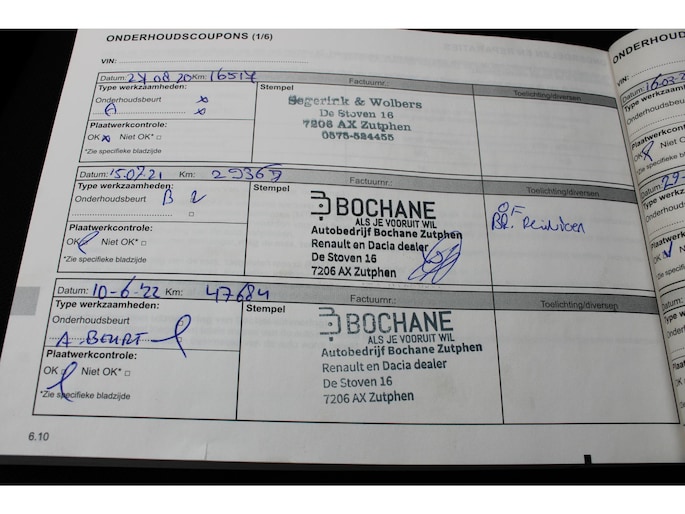 ONDERHOUDSCOUPONS (1/6)
VIN:
Datum: 27 08 20 Km: 16517 Factuurnr.:
Type werkzaamheden: Stempel Toelichting/diversen
Onderhoudsbeurt x
A x
Plaatwerkcontrole:
OK x Niet OK* □
*Zie specifieke bladzijde
Segerink & Wolbers
De Stoven 16
7206 AX Zutphen
0575-524455
Datum: 15.07.21 Km: 29369 Factuurnr.:
Type werkzaamheden: Stempel Toelichting/diversen
Onderhoudsbeurt B
Plaatwerkcontrole:
OK Niet OK* □
*Zie specifieke bladzijde
BOCHANE
ALS JE VOORUIT WIL
Autobedrijf Bochane Zutphen
Renault en Dacia dealer
De Stoven 16
7206 AX Zutphen
Datum: 10-6-22 Km: 47684 Factuurnr.:
Type werkzaamheden: Stempel Toelichting/diversen
Onderhoudsbeurt
A BEURT
Plaatwerkcontrole:
OK Niet OK* □
*Zie specifieke bladzijde
BOCHANE
ALS JE VOORUIT WIL
Autobedrijf Bochane Zutphen
Renault en Dacia dealer
De Stoven 16
7206 AX Zutphen
6.10
ONDERHOUD
VIN:
Datum: 16.03.2
Type werkzaam
Onderhoudsbeu
Plaatwerkcontro
OK Niet O
*Zie specifieke bla